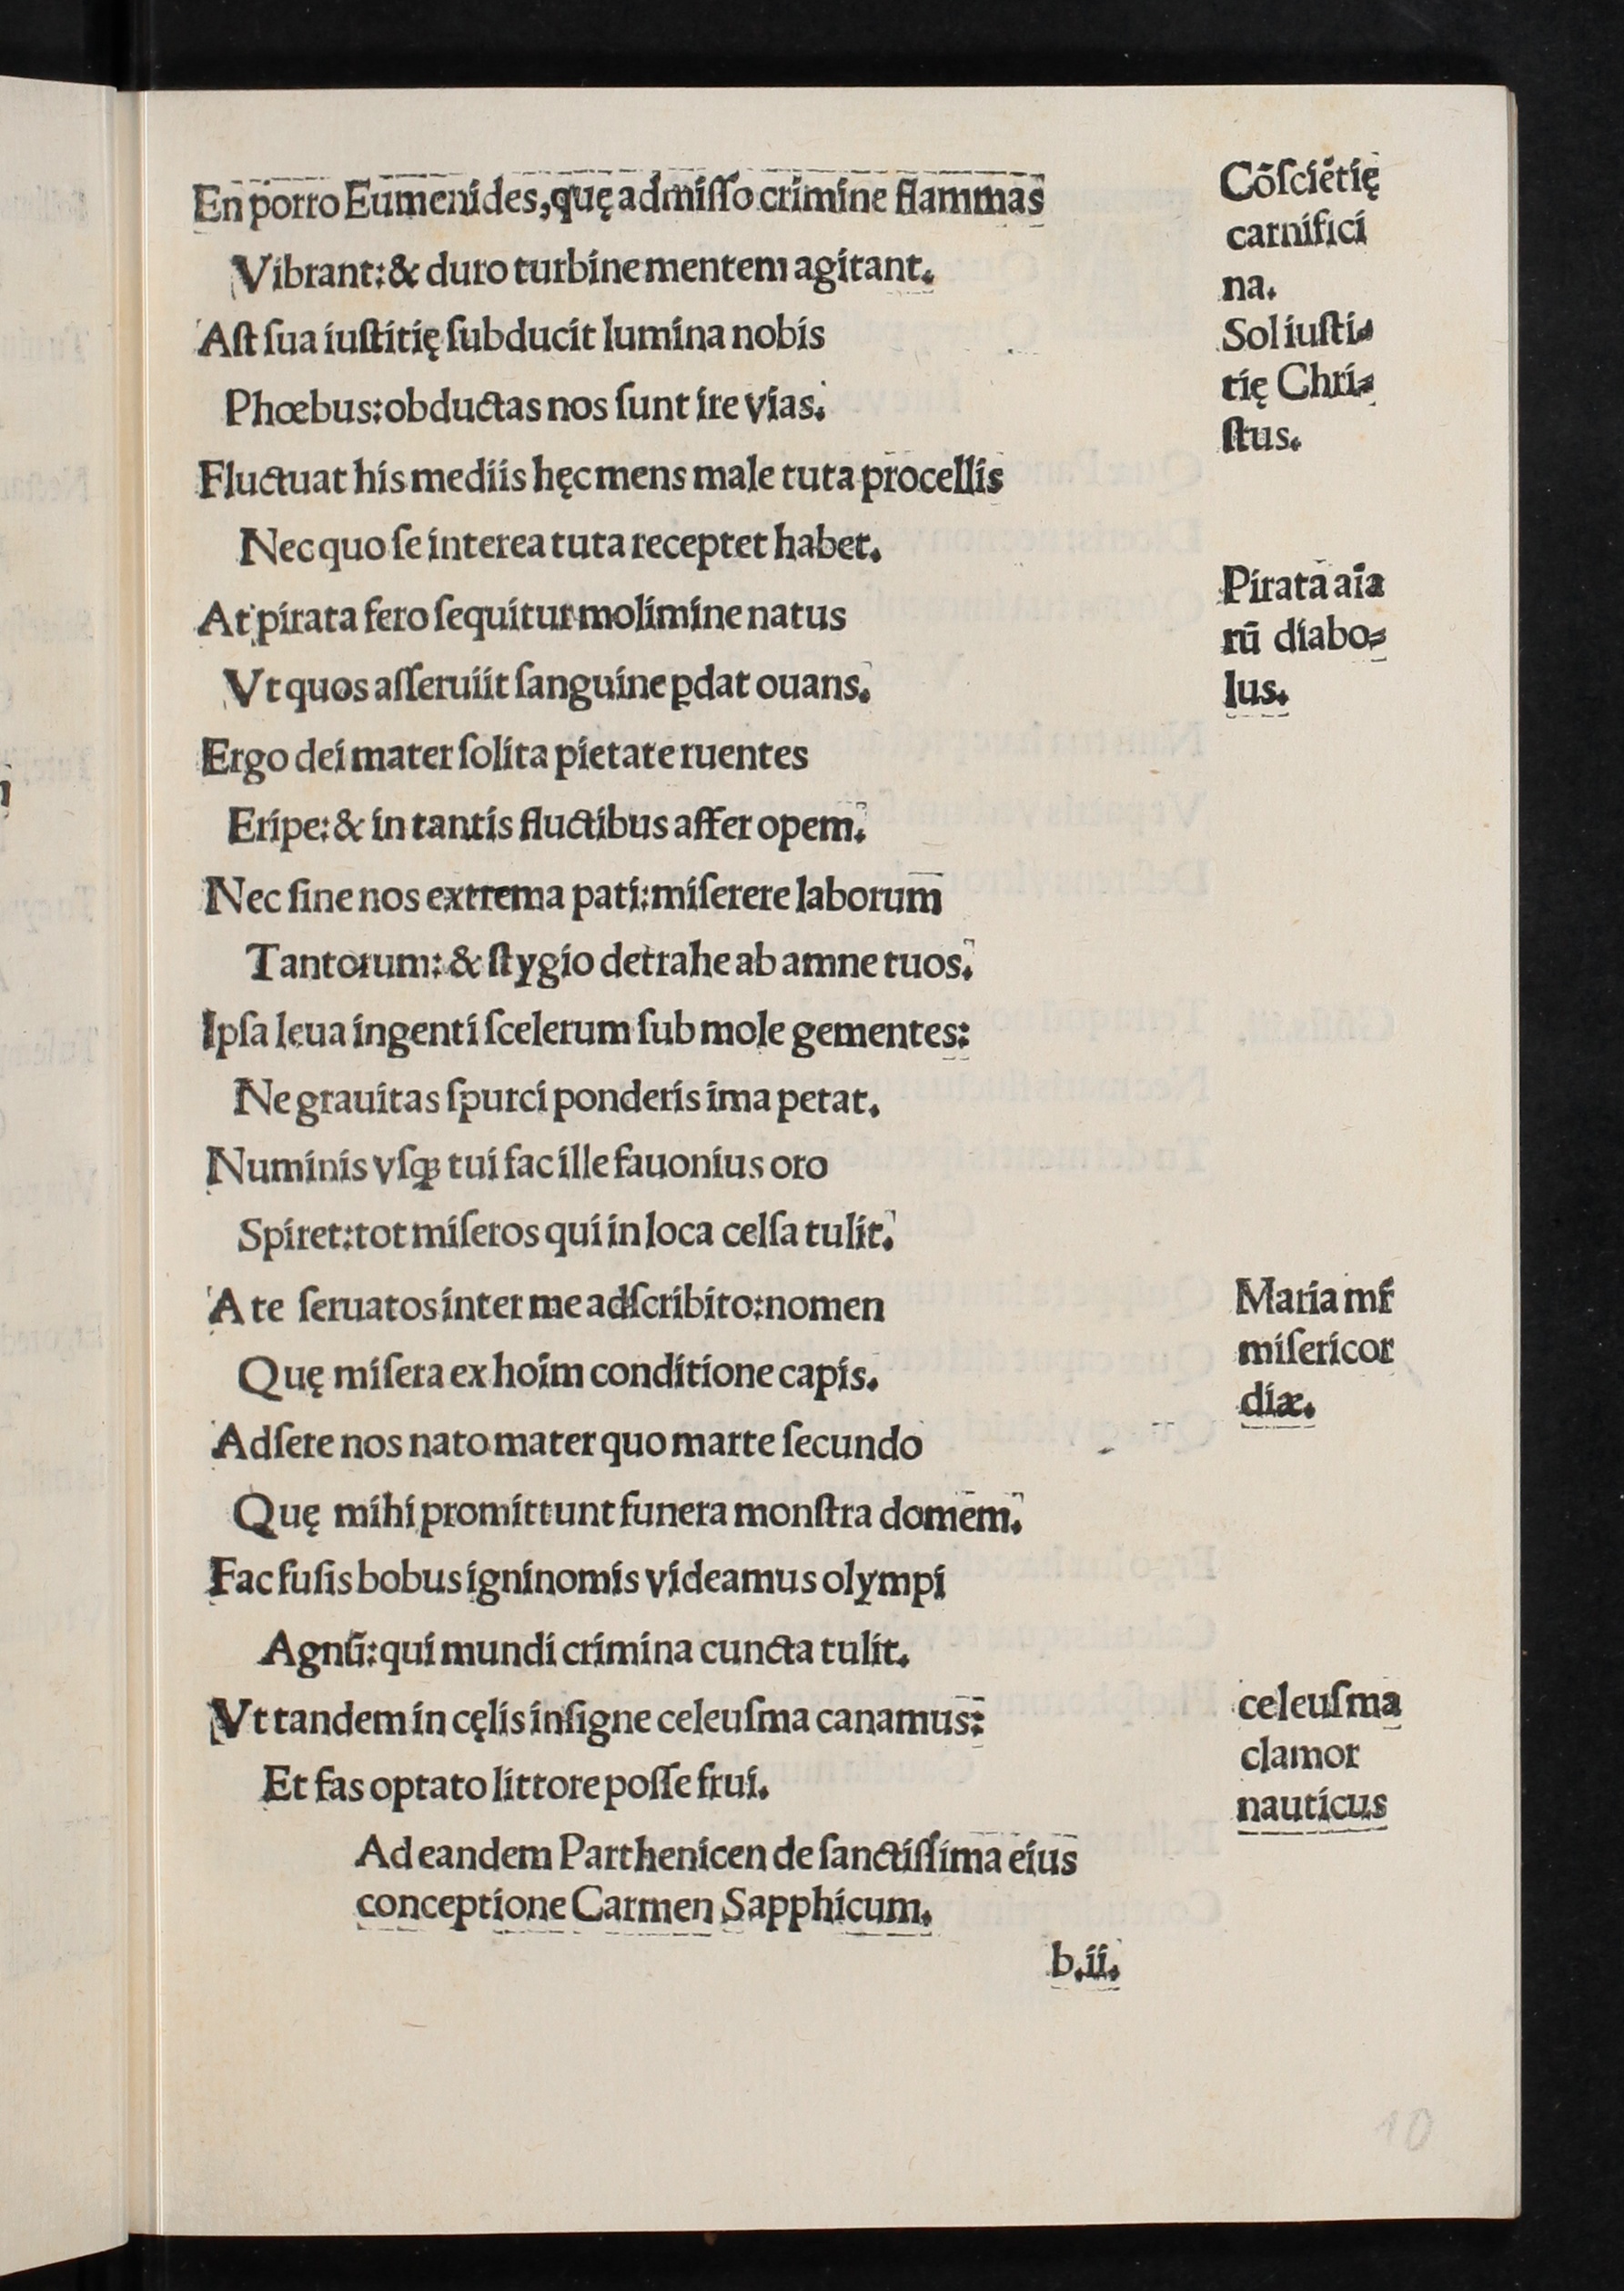 En porro Eumenides, quę admiſſo crimine flammas
Vibrant: & duro turbine mentem agitant.
Aſt ſua iuſtitię ſubducit lumina nobis
Phœbus: obductas nos ſunt ire vias.
Fluctuat his mediis hęc mens male tuta procellis
Nec quo ſe interea tuta receptet habet.
At pirata fero ſequitur molimine natus
Vt quos aſſeruiit ſanguine ꝑdat ouans.
Ergo dei mater ſolita pietate ruentes
Eripe: & in tantis fluctibus affer opem.
Nec ſine nos extrema pati: miſerere laborum
Tantorum: & ſtygio detrahe ab amne tuos.
Ipſa leua ingenti ſcelerum ſub mole gementes:
Ne grauitas ſpurci ponderis ima petat.
Numinis vſqꝫ tui fac ille fauonius oro
Spiret: tot miſeros qui in loca celſa tulit.
A te ſeruatos inter me adſcribito: nomen
Quę miſera ex hoim conditione capis.
Adſere nos nato mater quo marte ſecundo
Quę mihi promittunt funera monſtra domem.
Fac fuſis bobus igninomis videamus olympi
Agnū: qui mundi crimina cuncta tulit.
Vt tandem in cęlis inſigne celeuſma canamus:
Et fas optato littore poſſe frui.
Ad eandem Parthenicen de ſanctiſſima eius
conceptione Carmen Sapphicum.
b.ii.
Cōſciētię
carnifici
na.
Sol iuſti⸗
tię Chri⸗
ſtus.
Piratā aīa
rū diabo⸗
lus.
Maria mr̄
miſericor
diæ.
celeuſma
clamor
nauticus
10